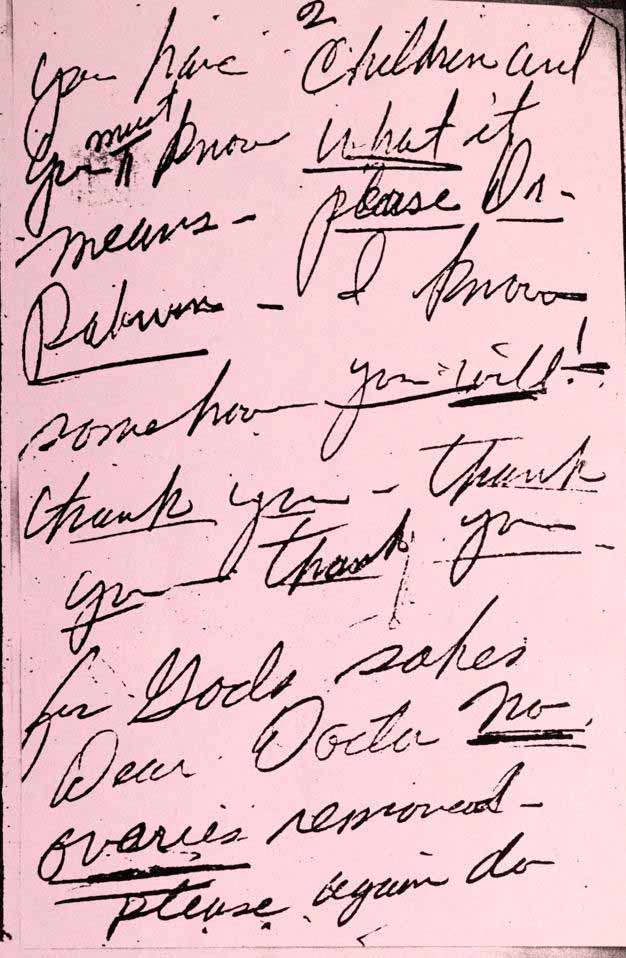 2
you have Children and
you must know what it
means - please Dr -
Rabwin - I know
somehow you will!
thank you - thank
you thank you -
for Gods sakes
Dear Doctor No
ovaries removed -
please again do